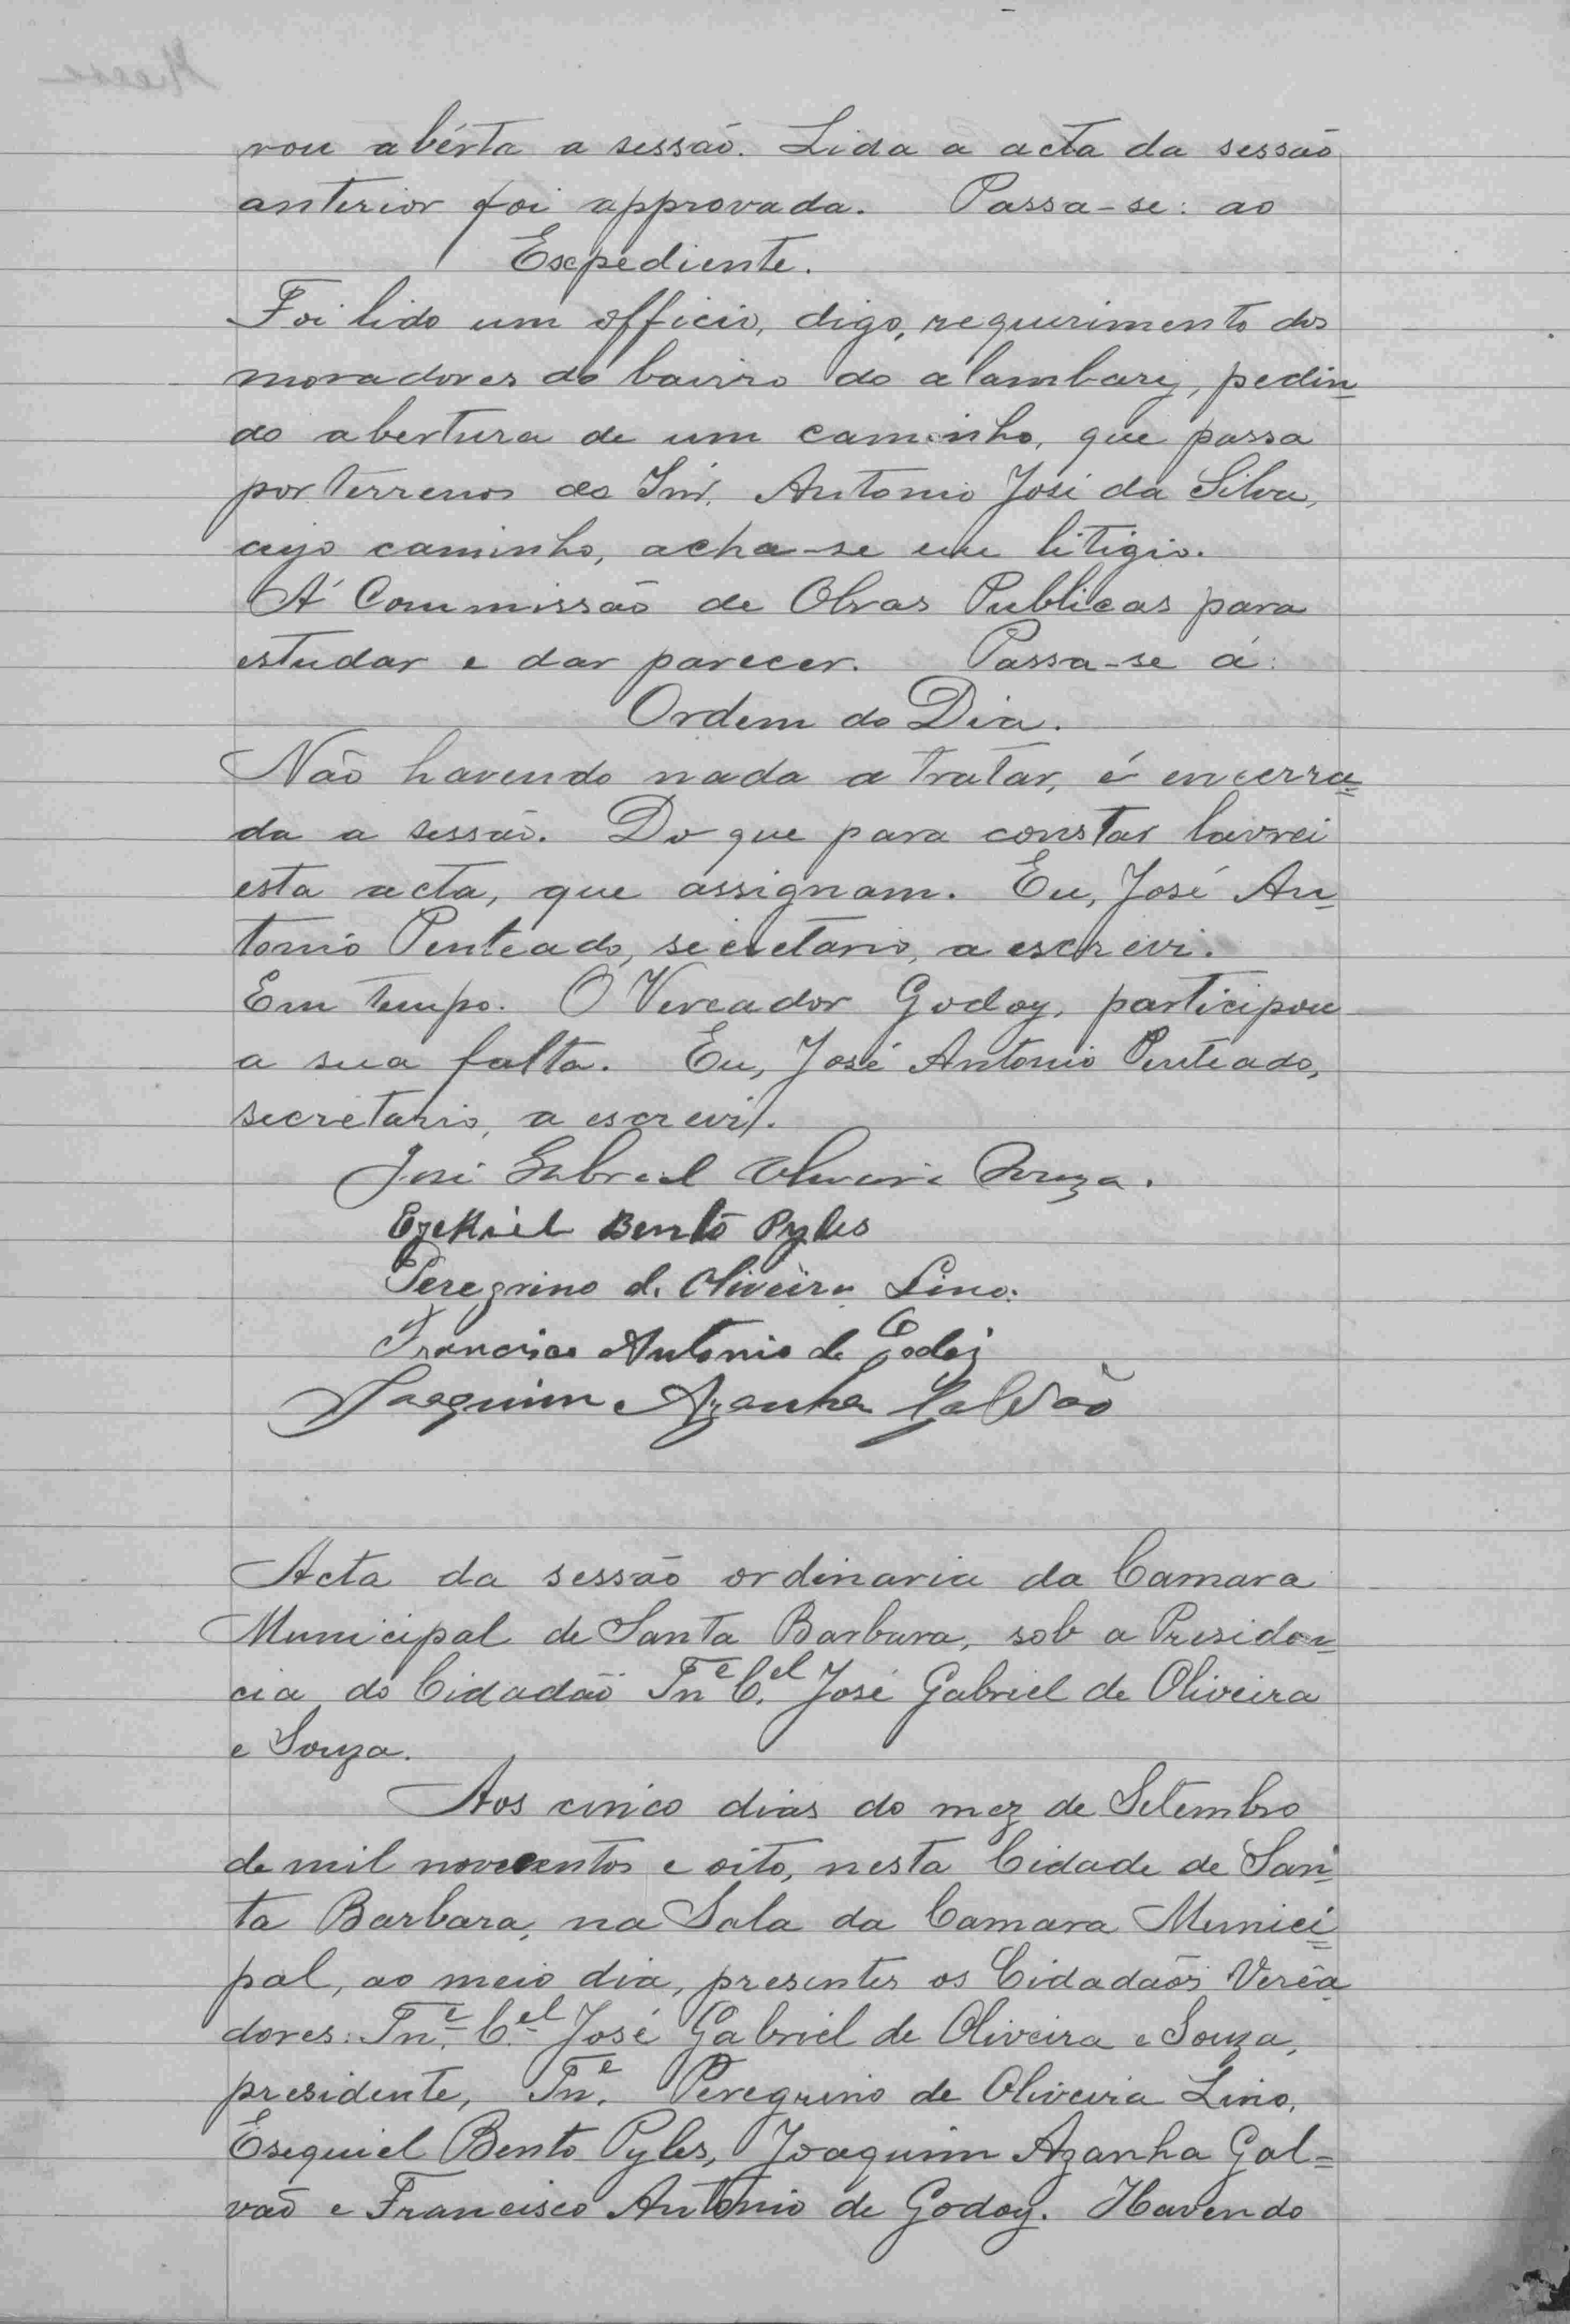 rou abérta a sessão. Lida a acta da sessão
anterior foi approvada. Passa-se: ao
Expediente.
Foi lido um officio, digo, requerimento dos
moradores do bairro do alambary, pedin
do abertura de um caminho, que passa
por terrenos do Snr. Antonio José da Silva,
cujo caminho, acha-se em litigio.
Á Commissão de Obras Publicas para
estudar e dar parecer. Passa-se á:
Ordem do Dia.
Não havendo nada a tratar, é encerra=
da a sessão. Do que para constar lavrei
esta acta, que assignam. Eu, José An
tonio Penteado, secretario, a escrevi.
Em tempo. O Vereador Godoy, participou
a sua falta. Eu, José Antonio Penteado,
secretario, a escrevi.
José Gabriel Oliveira Souza.
Ezekiel Bento Pyles
Peregrino d. Oliveira Lino.
Francisco Antonio de Godoi
Joaquim Azanha Galvão
Acta da sessão ordinaria da Camara
Municipal de Santa Barbara, sob a Presiden=
cia do Cidadão Tn.e C.el José Gabriel de Oliveira
e Souza.
Aos cinco dias do mez de Setembro
de mil novecentos e oito, nesta Cidade de San
ta Barbara, na Sala da Camara Munici=
pal, ao meio dia, presentes os Cidadaõs Verea
dores: Tn.e C.el José Gabriel de Oliveira e Souza,
presidente, Tn.e Peregrino de Oliveira Lino,
Esequiel Bento Pyles, Joaquim Azanha Gal=
vaõ e Francisco Antonio de Godoy. Havendo